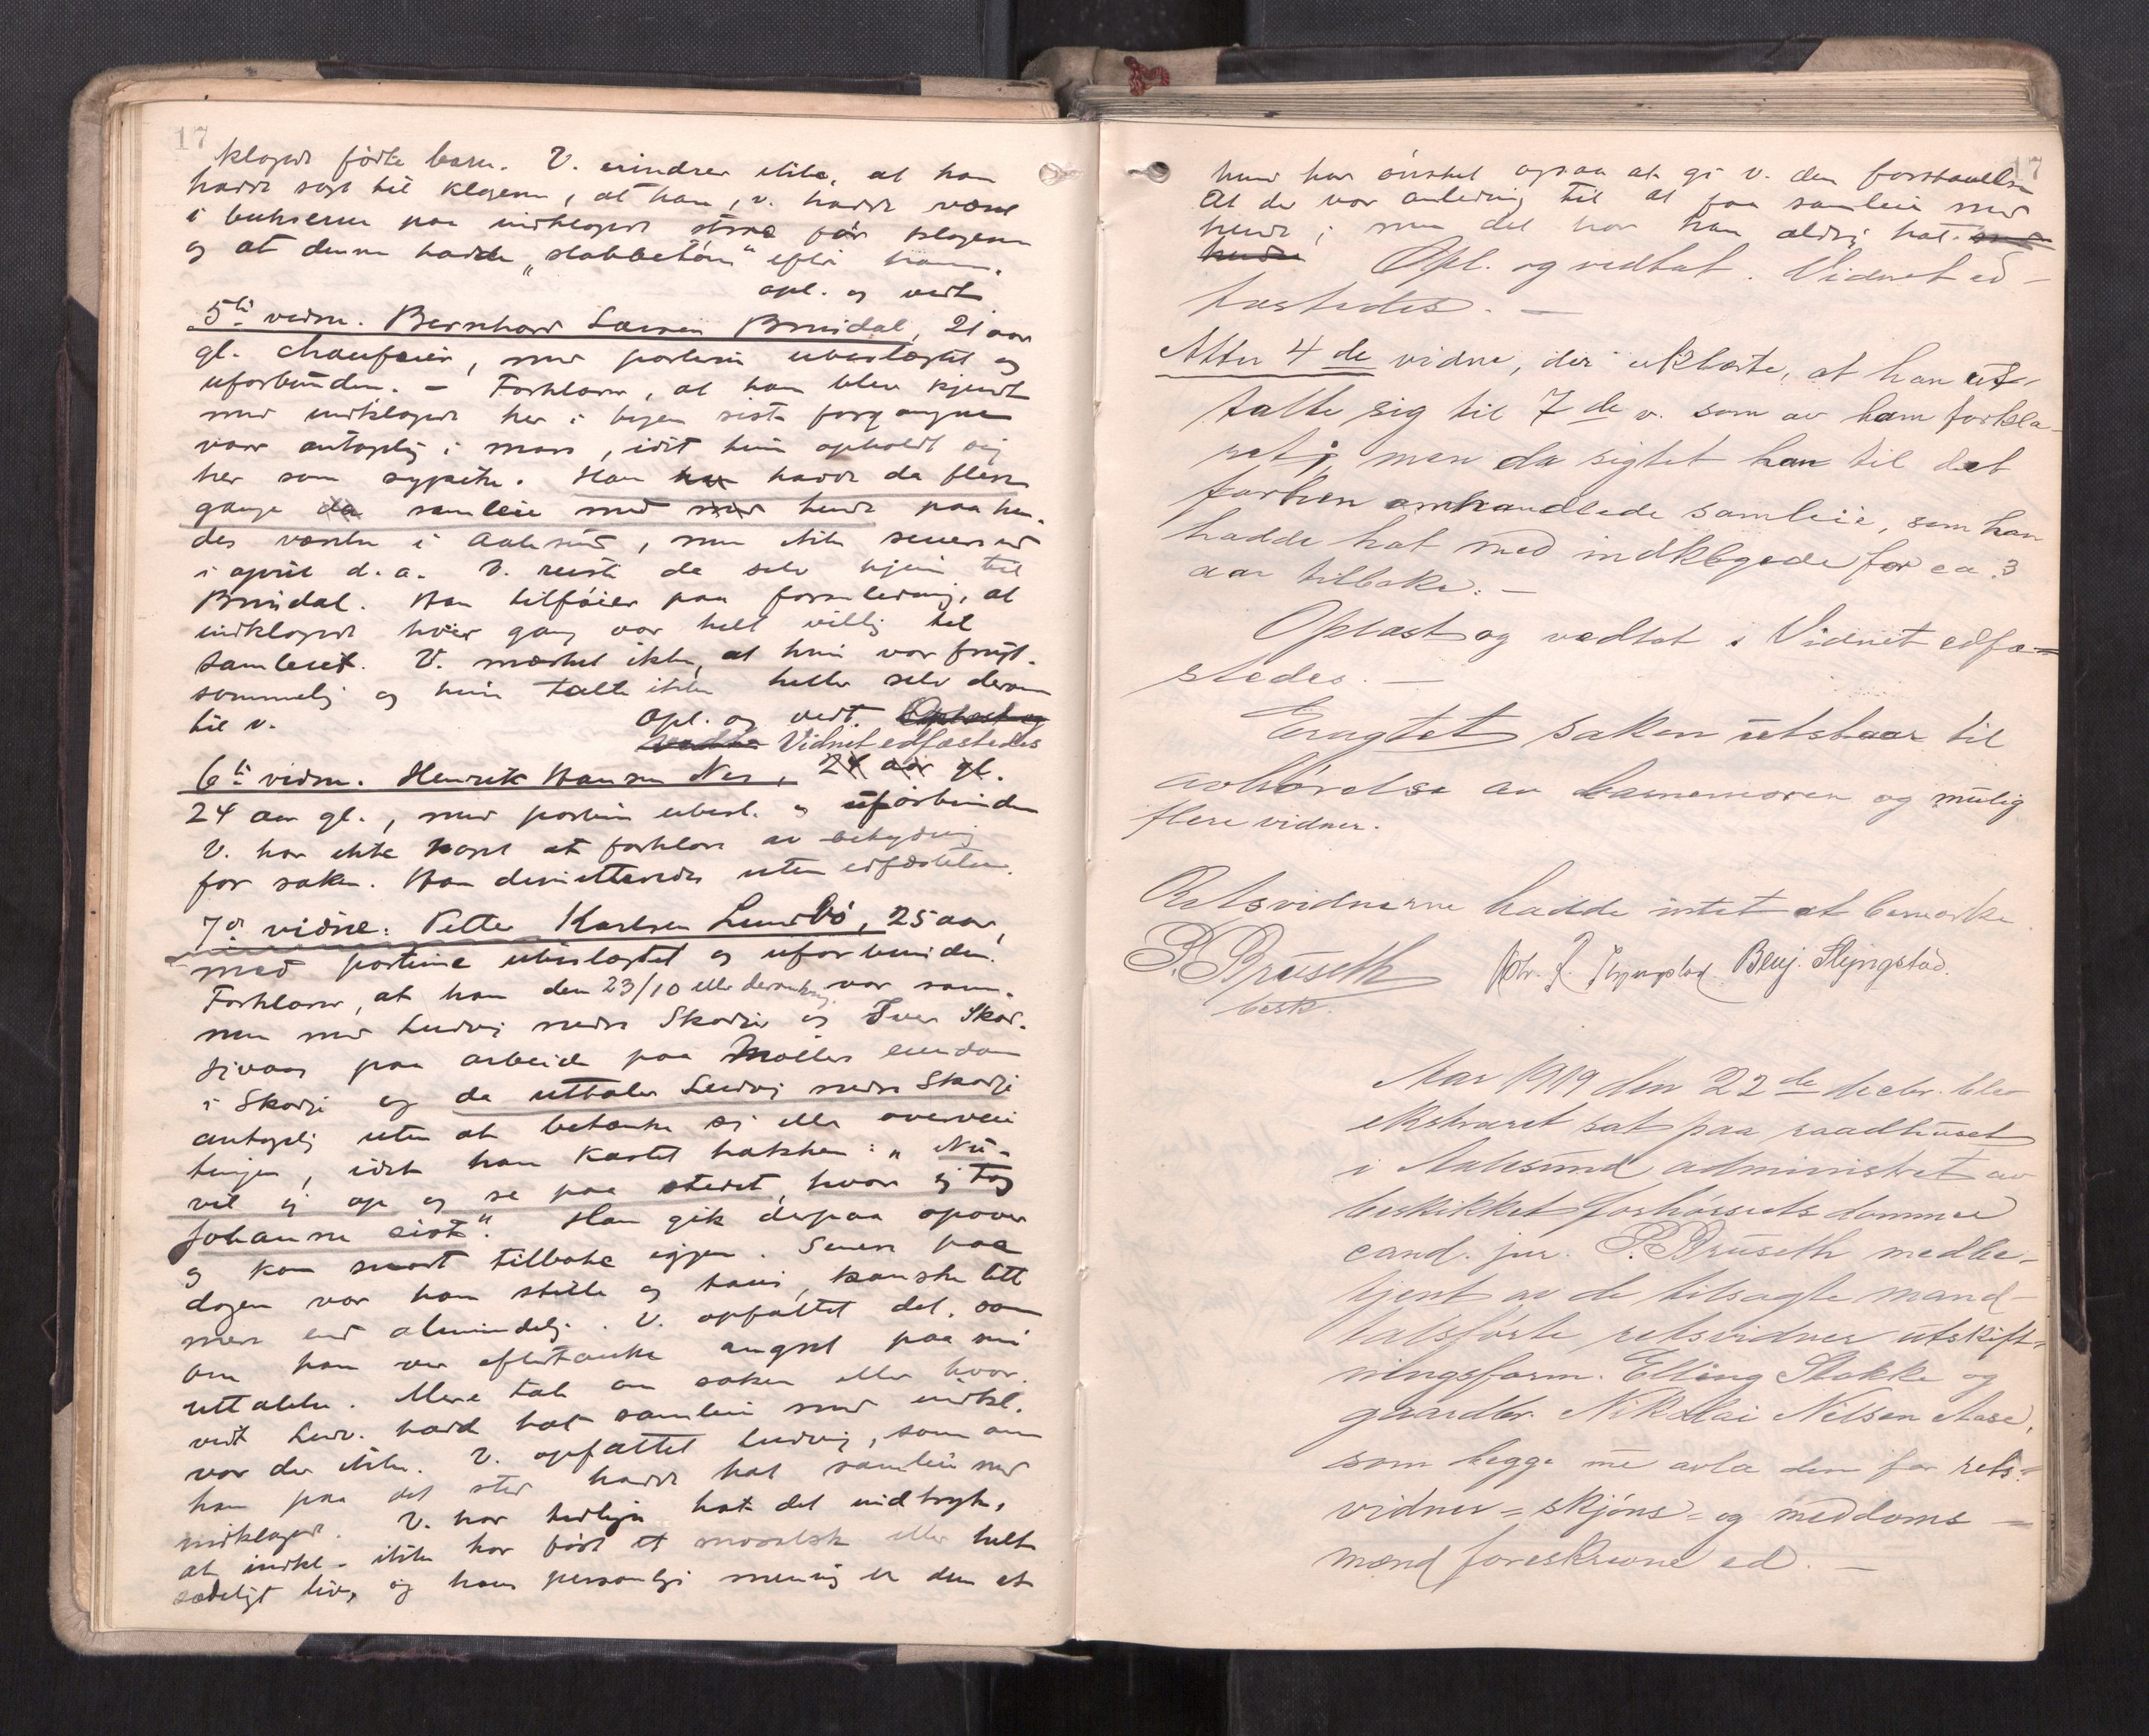 17
klagede fødte barn. V. erindrer ikke, at han
havde sagt til klageren, at han, v. havde været
i bukserne paa indklagede straks før klageren
og at denne hadde „slabbetøm" efter ham.
opl. og vedt.
5te vidne. Bernhard Larsen Brusdal, 21 aar
gl. chauffeur, med parterne ubeslegtet og
uforbunden. – Forklarer, at han blev kjendt
med indklagede her i byen sist forgangne
vaar antagelig i mars, idet hun opholdt sig
her som sypike. Han har havde da flere
gange da samleie med med hende paa hen-
des værelse i Aalesund, men ikke senere end
i april d. a. V. reiste da selv hjem til
Brusdal. Han tilføier paa foranledning, at
indklagede hver gang var helt villig til
samleiet. V. merket ikke, at hun var frugt-
sommelig og hun talte ikke heller selv derom
til v.
Opl. og vedt. Oplæst og
vedtat Vidnet edfæstedes
6te vidne. Henrik Hansen Nes, 24 aar gl.
24 aar gl., med parterne ubesl. og uforbunden
V. har ikke noget at forklare av betydning
for saken. Han demitteredes uten edfæstelse.
7de vidne. Petter Karlsen Lundbø, 25 aar,
med parterne ubeslegtet og uforbunden.
Forklarer, at han den 23/10 eller deromkring var sam-
men med Ludvig nedre Skodje og Iver Skod-
jivaag paa arbeide paa Møller eiendom
i Skodje og da uttaler Ludvig nedre Skodje
antagelig uten at betænke sig eller overveie
tingen, idet han kastet hakken: „Nu
vil jeg op og se paa stedet, hvor jeg tog
Johanne sist." Han gik derpaa opover
og kom snart tilbake igjen. Senere paa
dagen var han stille og taus, kanske litt
mere end almindelig. V. opfattet det, som
om han ved eftertanke angret paa sin
uttalelse. Mere tale om saken eller hvor-
vidt Ludv. hadde hat samleie med indkl.
var der ikke. V. opfattet Ludvig, som om
han paa det sted hadde hat samleie med
indklagede. V. har tidligere hat det indtryk,
at indkl. ikke har ført et moralsk eller helt
sædeligt liv, og hans personlige mening er den at
17
hun har ønsket ogsaa at gi v. den forstaaelse
at der var anledning til at faa samleie med
hende; men det har han aldrig hat. med
hende Opl. og vedtat. Vidnet ed-
fæstedes. –
Atter 4de vidne, der erklærte, at han ut-
talte sig til 7de v. som av ham forkla-
ret; men da sigtet han til det
forhen omhandlede samleie, som han
hadde hat med indklagede for ca. 3
aar tilbake. –
Oplæst og vedtat. Vidnet edfæ-
stedes. –
Eragtet saken utstaar til
avhørelse av barnemoren og mulig
flere vidner.
Retsvidnerne hadde intet at bemerke
P. Bruseth
besk.
Benj. Slyngstad.
Aar 1919 den 22de decbr. blev
ekstraret sat paa raadhuset
i Aalesund administret av
beskikket forhørsretsdommer
cand. jur. P. Bruseth medbe-
tjent av de tilsagte mand-
talsførte retsvidner utskift-
ningsform. Elling Stokke og
gaardbr. Nikolai Nilsen Aase,
som begge nu avla den for rets-
vidner- skjøns- og meddoms-
mænd foreskrevne ed. –